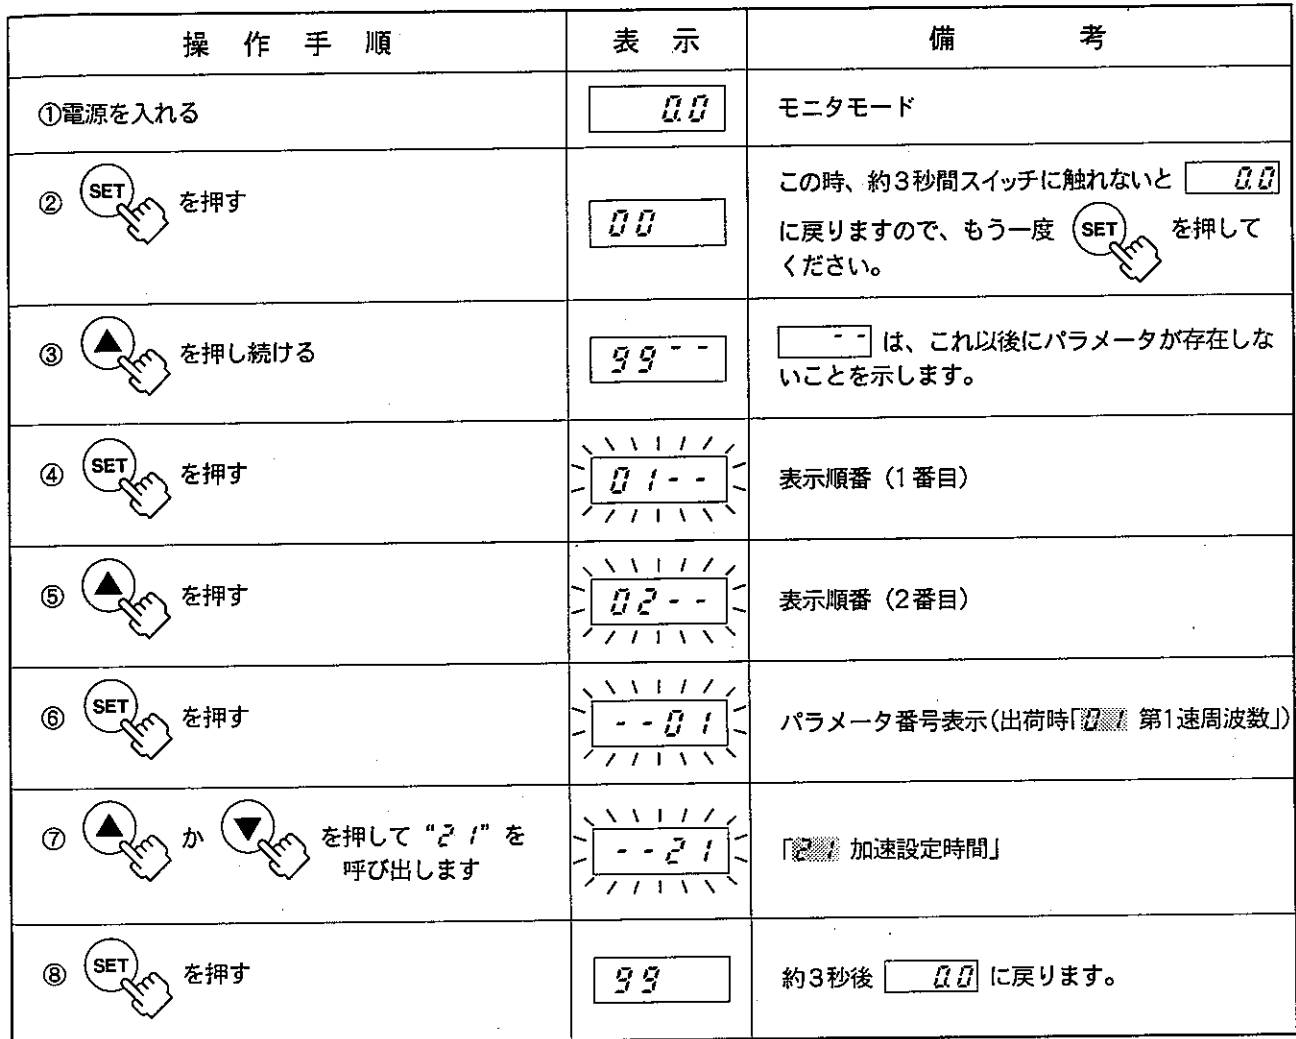 操作手順 表示 備考
①電源を入れる 0.0 モニタモード
② SET を押す 00 この時、約3秒間スイッチに触れないと 0.0
に戻りますので、もう一度 SET を押して
ください。
③ ▲ を押し続ける 99-- -- は、これ以後にパラメータが存在しな
いことを示します。
④ SET を押す 01-- 表示順番(1番目)
⑤ ▲ を押す 02-- 表示順番(2番目)
⑥ SET を押す --01 パラメータ番号表示(出荷時「01 第1速周波数」)
⑦ ▲ か ▼ を押して“21”を --21 「21 加速設定時間」
呼び出します
⑧ SET を押す 99 約3秒後 0.0 に戻ります。